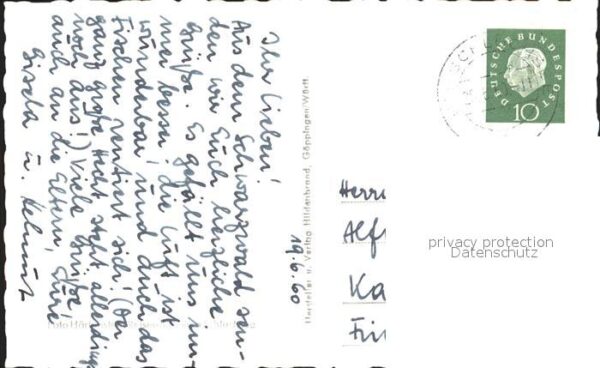 Ihr Lieben!
Aus dem Schwarzwald sen-
den wir Euch herzliche
Grüße. Es gefällt uns im-
mer besser, die Luft ist
wunderbar und auch das
Fischen rentiert sich! (Der
ganz große Hecht steht allerdings
noch aus!) Viele Grüße!
auch an die Eltern, Eure
Gisela u. Helmut
19.6.60
Hersteller u. Verlag Hildenbrand, Göppingen/Württ.
DEUTSCHE BUNDESPOST
10
Herrn
Alf
Ka
Fri
privacy protection
Datenschutz